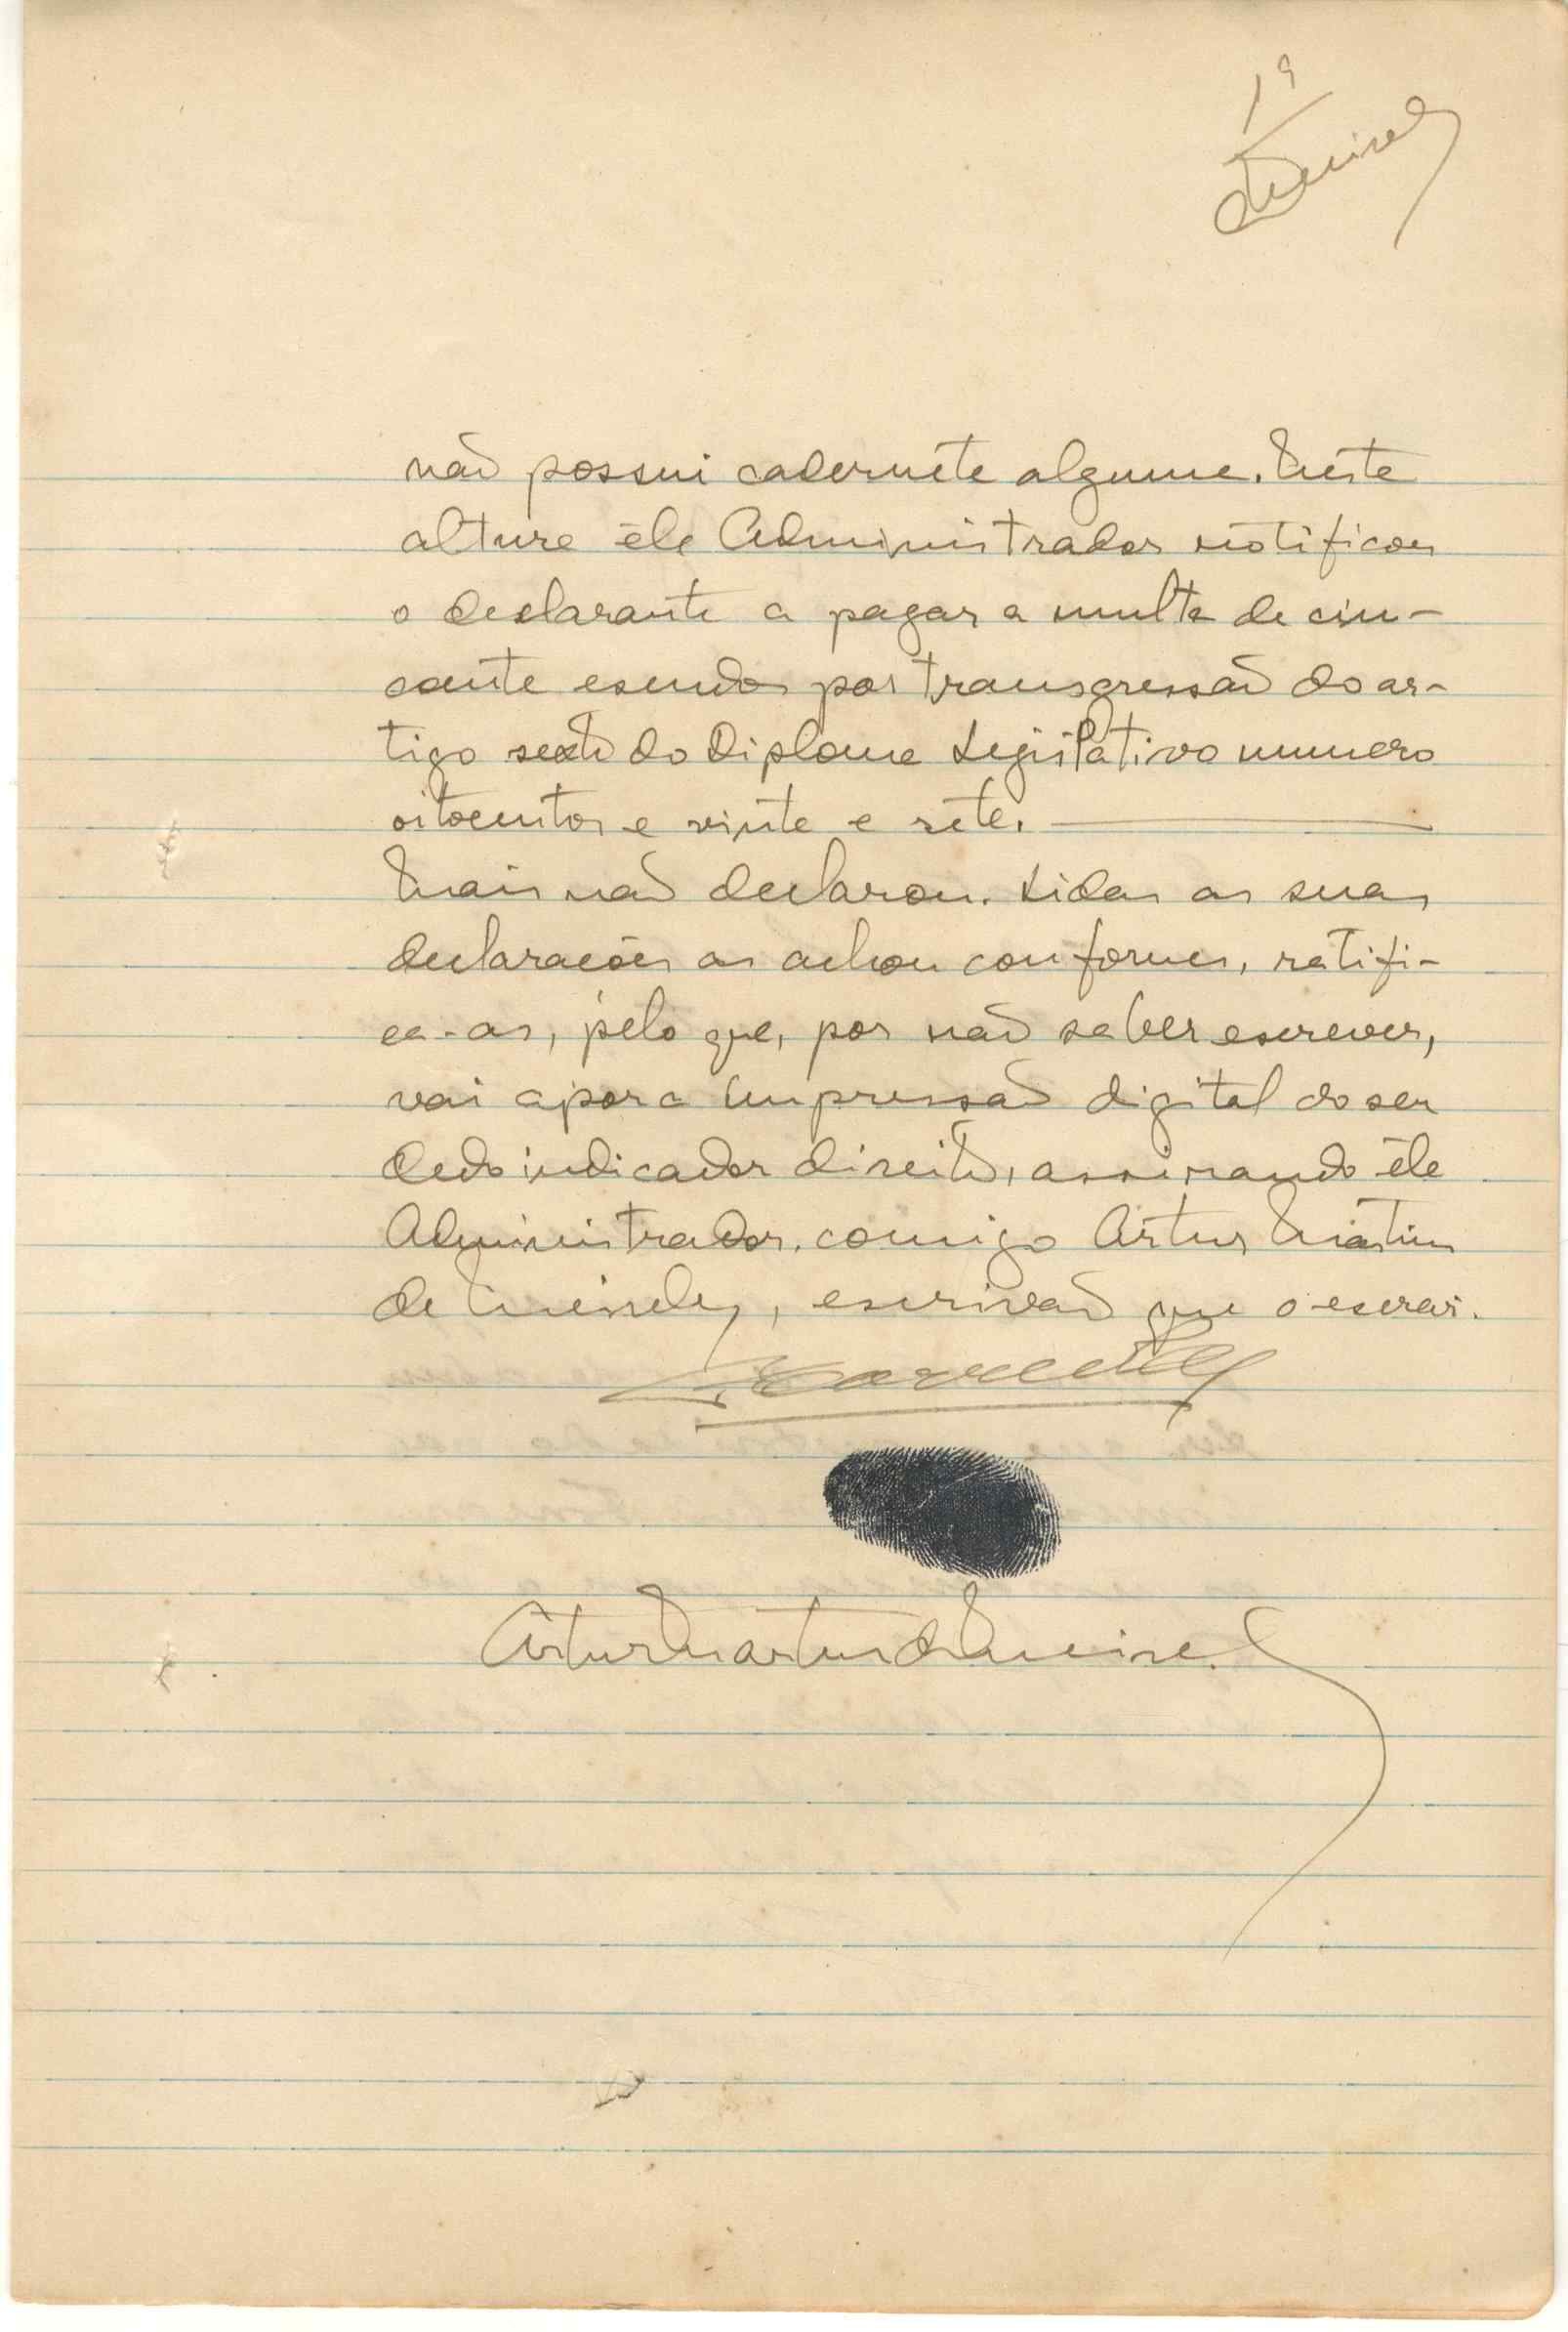 não possui caderneta alguma. Nesta
altura êle Administrador notificou
o declarante a pagar a multa de cin-
coenta escudos por transgressão do ar-
tigo sexto do Diploma Legislativo numero
oitocentos e vinte e sete.
Mais não declarou. Lidas as suas
declarações as achou conformes, ratifi-
ca-as, pelo que, por não saber escrever,
vai apor a impressão digital do seu
dedo indicador direito, assinando êle
Administrador, comigo Artur Martins
de Meireles, escrivão que o escrevi.
Artur Martins de Meireles